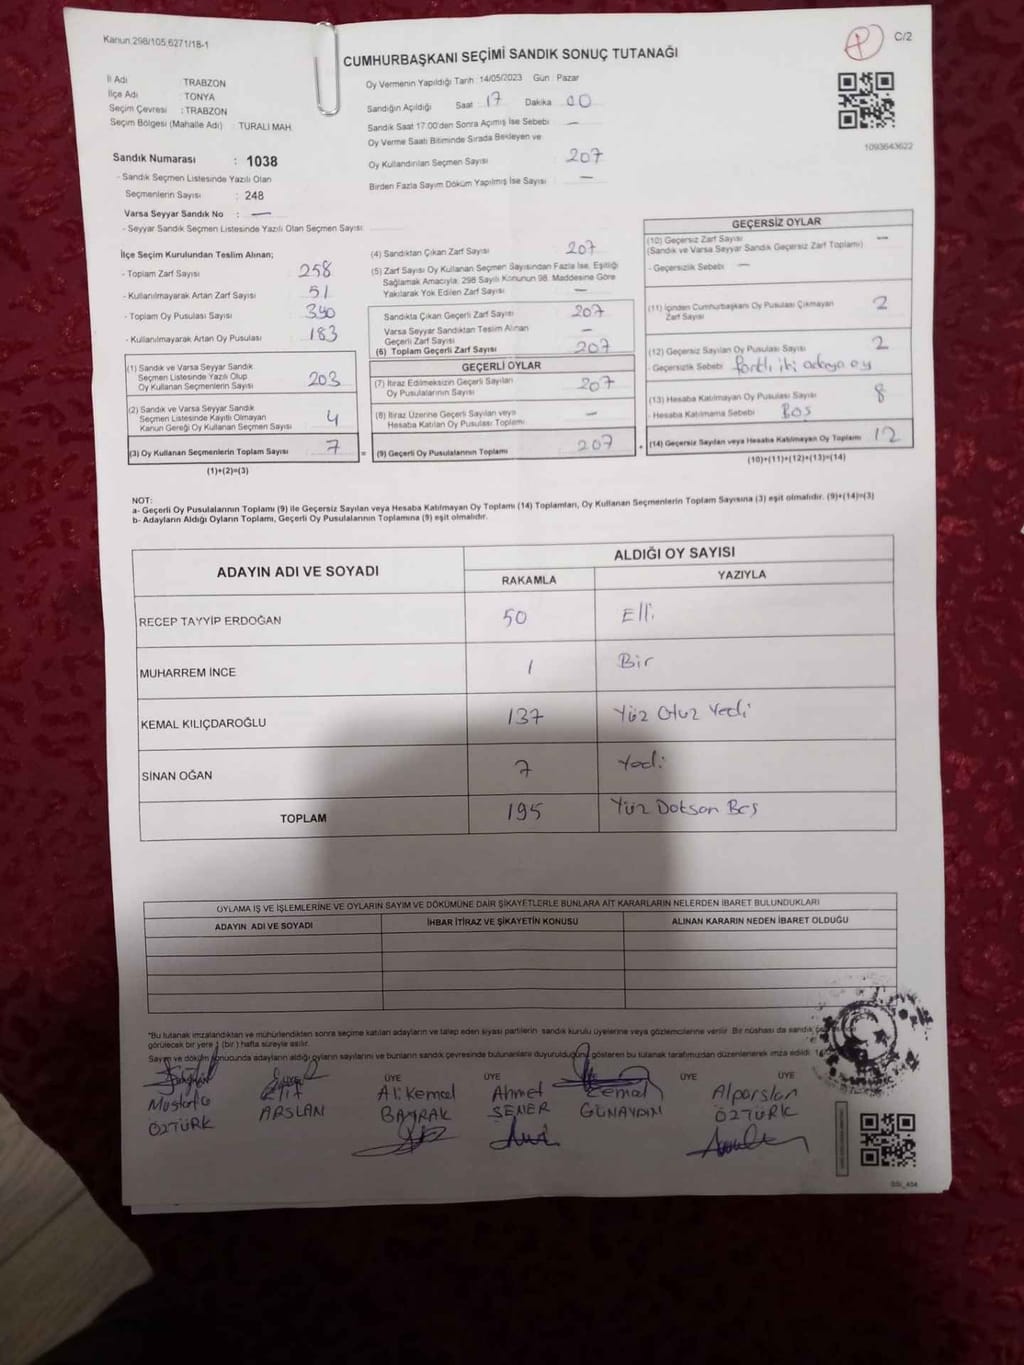 Kanun.298/105,6271/18-1
CUMHURBAŞKANI SEÇİMİ SANDIK SONUÇ TUTANAĞI
C/2
İl Adı TRABZON
İlçe Adı TONYA
Seçim Çevresi : TRABZON
Seçim Bölgesi (Mahalle Adı) : TURALI MAH.
Sandık Numarası : 1038
- Sandık Seçmen Listesinde Yazılı Olan
Seçmenlerin Sayısı : 248
Varsa Seyyar Sandık No : —
- Seyyar Sandık Seçmen Listesinde Yazılı Olan Seçmen Sayısı
Oy Vermenin Yapıldığı Tarih : 14/05/2023 Gün : Pazar
Sandığın Açıldığı Saat : 17 Dakika : 00
Sandık Saat 17:00'den Sonra Açımış İse Sebebi : —
Oy Verme Saati Bitiminde Sırada Bekleyen ve
Oy Kullandırılan Seçmen Sayısı : 207
Birden Fazla Sayım Döküm Yapılmış İse Sayısı : —
1093643622
İlçe Seçim Kurulundan Teslim Alınan;
- Toplam Zarf Sayısı 258
- Kullanılmayarak Artan Zarf Sayısı 51
- Toplam Oy Pusulası Sayısı 390
- Kullanılmayarak Artan Oy Pusulası 183
(1) Sandık ve Varsa Seyyar Sandık
Seçmen Listesinde Yazılı Olup
Oy Kullanan Seçmenlerin Sayısı 203
(2) Sandık ve Varsa Seyyar Sandık
Seçmen Listesinde Kayıtlı Olmayan
Kanun Gereği Oy Kullanan Seçmen Sayısı 4
(3) Oy Kullanan Seçmenlerin Toplam Sayısı 7
(1)+(2)=(3)
(4) Sandıktan Çıkan Zarf Sayısı 207
(5) Zarf Sayısı Oy Kullanan Seçmen Sayısından Fazla İse, Eşitliği
Sağlamak Amacıyla; 298 Sayılı Konunun 98. Maddesine Göre
Yakılarak Yok Edilen Zarf Sayısı —
Sandıkta Çıkan Geçerli Zarf Sayısı 207
Varsa Seyyar Sandıktan Teslim Alınan
Geçerli Zarf Sayısı —
(6) Toplam Geçerli Zarf Sayısı 207
GEÇERLİ OYLAR
(7) İtiraz Edilmeksizin Geçerli Sayılan
Oy Pusulalarının Sayısı 207
(8) İtiraz Üzerine Geçerli Sayılan veya
Hesaba Katılan Oy Pusulası Toplamı —
= (9) Geçerli Oy Pusulalarının Toplamı 207 +
GEÇERSİZ OYLAR
(10) Geçersiz Zarf Sayısı —
(Sandık ve Varsa Seyyar Sandık Geçersiz Zarf Toplamı)
- Geçersizlik Sebebi : —
(11) İçinden Cumhurbaşkanı Oy Pusulası Çıkmayan
Zarf Sayısı 2
(12) Geçersiz Sayılan Oy Pusulası Sayısı 2
- Geçersizlik Sebebi farklı iki adaya oy
(13) Hesaba Katılmayan Oy Pusulası Sayısı 8
- Hesaba Katılmama Sebebi : Boş
(14) Geçersiz Sayılan veya Hesaba Katılmayan Oy Toplamı 12
(10)+(11)+(12)+(13)=(14)
NOT:
a- Geçerli Oy Pusulasının Toplamı (9) ile Geçersiz Sayılan veya Hesaba Katılmayan Oy Toplamı (14) Toplamları, Oy Kullanan Seçmenlerin Toplam Sayısına (3) eşit olmalıdır. (9)+(14)=(3)
b- Adayların Aldığı Oyların Toplamı, Geçerli Oy Pusulalarının Toplamına (9) eşit olmalıdır.
ADAYIN ADI VE SOYADI
ALDIĞI OY SAYISI
RAKAMLA YAZIYLA
RECEP TAYYİP ERDOĞAN 50 Elli
MUHARREM İNCE 1 Bir
KEMAL KILIÇDAROĞLU 137 Yüz Otuz Yedi
SİNAN OĞAN 7 Yedi
TOPLAM 195 Yüz Doksan Beş
OYLAMA İŞ VE İŞLEMLERİNE VE OYLARIN SAYIM VE DÖKÜMÜNE DAİR ŞİKAYETLERLE BUNLARA AİT KARARLARIN NELERDEN İBARET BULUNDUKLARI
ADAYIN ADI VE SOYADI İHBAR İTİRAZ VE ŞİKAYETİN KONUSU ALINAN KARARIN NEDEN İBARET OLDUĞU
"Bu tutanak imzalandıktan ve mühürlendikten sonra seçime katılan adayların ve talep eden siyasi partilerin sandık kurulu üyelerine veya gözlemcilerine verilir. Bir nüshası da sandık
görülecek bir yere 1 (bir) hafta süreyle asılır.
Sayım ve döküm sonucunda adayların aldığı oyların sayılarını ve bunların sandık çevresinde bulunanlara duyurulduğunu gösteren bu tutanak tarafımızdan düzenlenerek imza edildi.
ÜYE ÜYE ÜYE ÜYE
Mustafa Elif Ali Kemal Ahmet Cemal Alparslan
ÖZTÜRK ARSLAN BAYRAK ŞENER GÜNAYDIN ÖZTÜRK